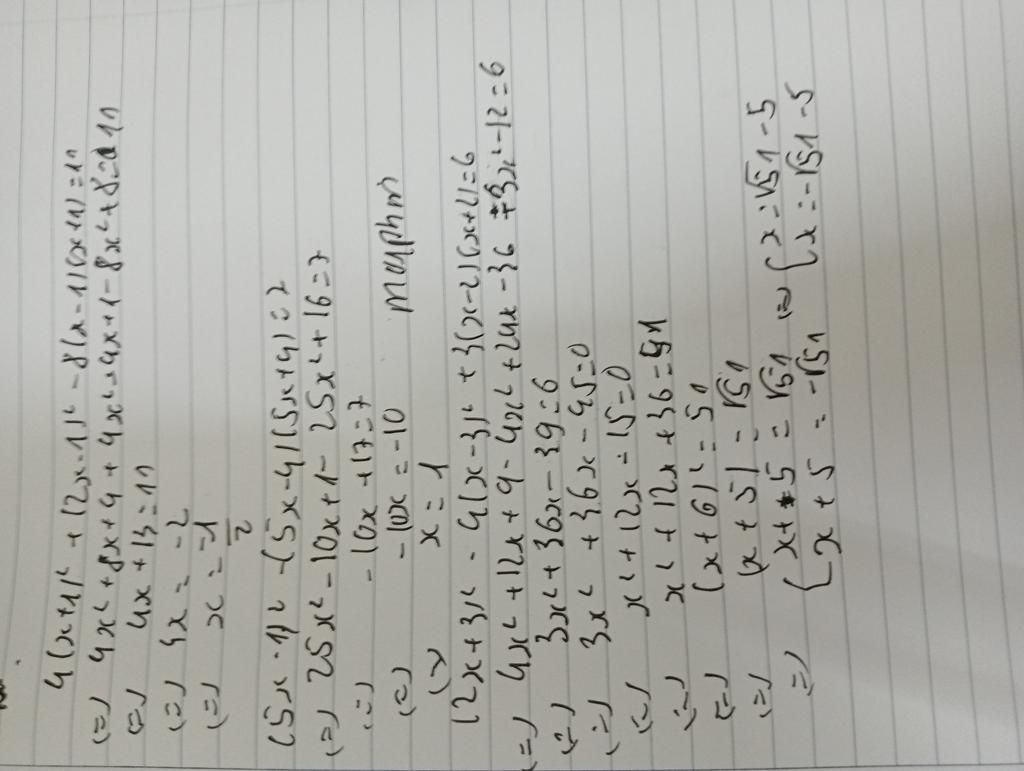 4(x+1)² + (2x-1)² - 8(x-1)(x+1) = 11
(=) 4x²+8x+4 + 4x²-4x+1 - 8x²+8 = 11
(=) 4x + 13 = 11
(=) 4x = -2
(=) x = -1/2
(5x-1)² - (5x-4)(5x+4) = 7
(=) 25x² - 10x + 1 - 25x² + 16 = 7
(=) -10x + 17 = 7
(=) -10x = -10
(=) x = 1
(2x+3)² - 4(x-3)² + 3(x-2)(x+2) = 6
(=) 4x² + 12x + 9 - 4x² + 24x - 36 + 3x² - 12 = 6
(=) 3x² + 36x - 39 = 6
(=) 3x² + 36x - 45 = 0
(=) x² + 12x - 15 = 0
(=) x² + 12x + 36 = 51
(=) (x+6)² = 51
(=) |x+5| = √51
(=) { x+5 = √51 (=) { x = √51 - 5
{ x+5 = -√51 { x = -√51 - 5